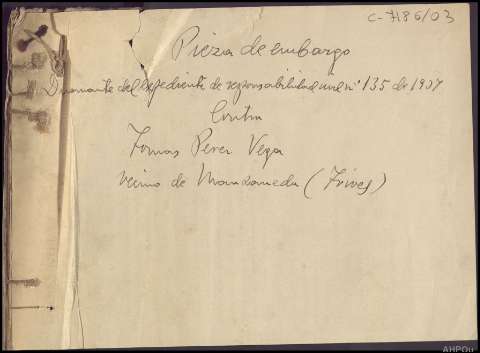 C-7186/03
Pieza de embargo
Dimanante del expediente de responsabilidad civil nº 135 de 1937
Contra
Tomas Perez Vega
vecino de Manzaneda (Trives)
AHPOu